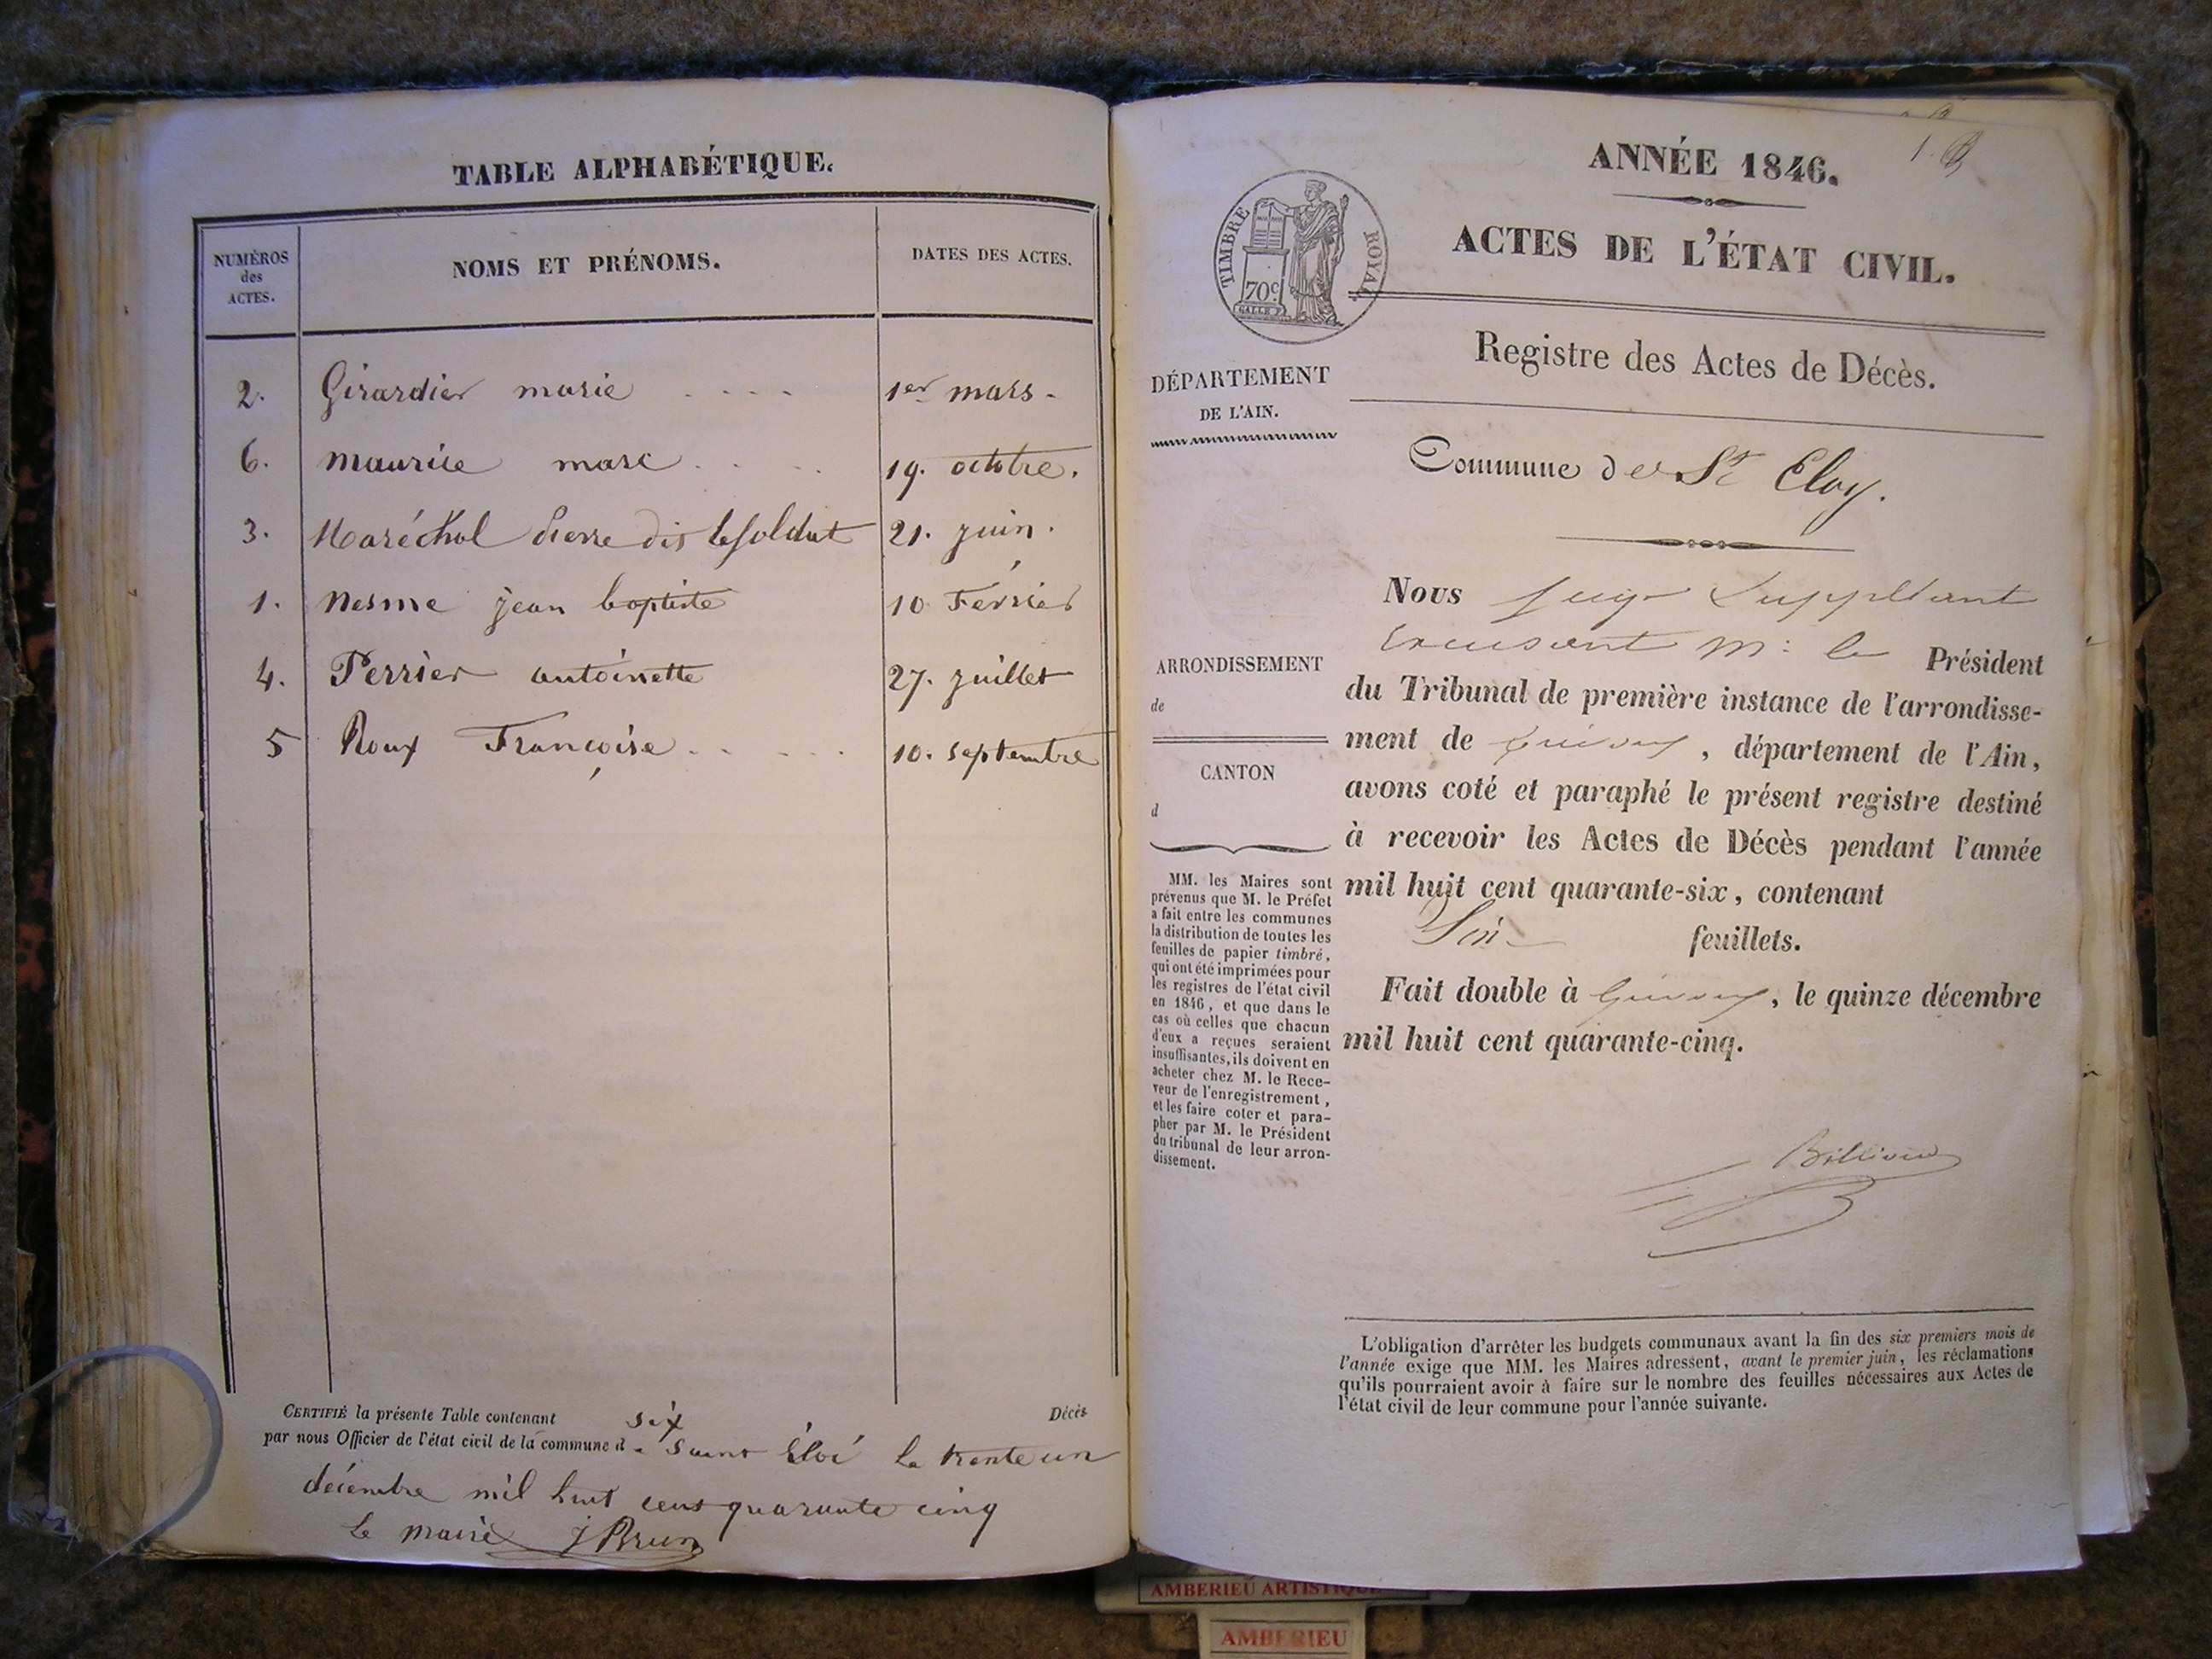 TABLE ALPHABÉTIQUE.
NUMÉROS
des
ACTES.
NOMS ET PRÉNOMS.
DATES DES ACTES.
2. Girardier marie . . . . 1er mars.
6. maurice marc . . . . 19. octobre.
3. Maréchal pierre dit le soldat 21. juin.
1. Nesme jean baptiste 10 Février
4. Perrier antoinette 27. juillet
5 Roux Françoise . . . . . 10. septembre
CERTIFIÉ la présente Table contenant six Décès
par nous Officier de l'état civil de la commune de Saint Éloi le trente un
décembre mil huit cent quarante cinq
le maire J Brun
1. B
ANNÉE 1846.
ACTES DE L'ÉTAT CIVIL.
TIMBRE ROYAL
70c.
GALLE F.
Registre des Actes de Décès.
DÉPARTEMENT
DE L'AIN.
Commune de St Eloy.
Nous juge Suppléant
M. le Président
du Tribunal de première instance de l'arrondisse-
ment de , département de l'Ain,
avons coté et paraphé le présent registre destiné
à recevoir les Actes de Décès pendant l'année
mil huit cent quarante-six, contenant
feuillets.
Fait double à , le quinze décembre
mil huit cent quarante-cinq.
ARRONDISSEMENT
de
CANTON
d
MM. les Maires sont
prévenus que M. le Préfet
a fait entre les communes
la distribution de toutes les
feuilles de papier timbré,
qui ont été imprimées pour
les registres de l'état civil
en 1846, et que dans le
cas où celles que chacun
d'eux a reçues seraient
insuffisantes, ils doivent en
acheter chez M. le Rece-
veur de l'enregistrement,
et les faire coter et para-
pher par M. le Président
du tribunal de leur arron-
dissement.
L'obligation d'arrêter les budgets communaux avant la fin des six premiers mois de
l'année exige que MM. les Maires adressent, avant le premier juin, les réclamations
qu'ils pourraient avoir à faire sur le nombre des feuilles nécessaires aux Actes de
l'état civil de leur commune pour l'année suivante.
AMBERIEU ARTISTIQUE
AMBERIEU